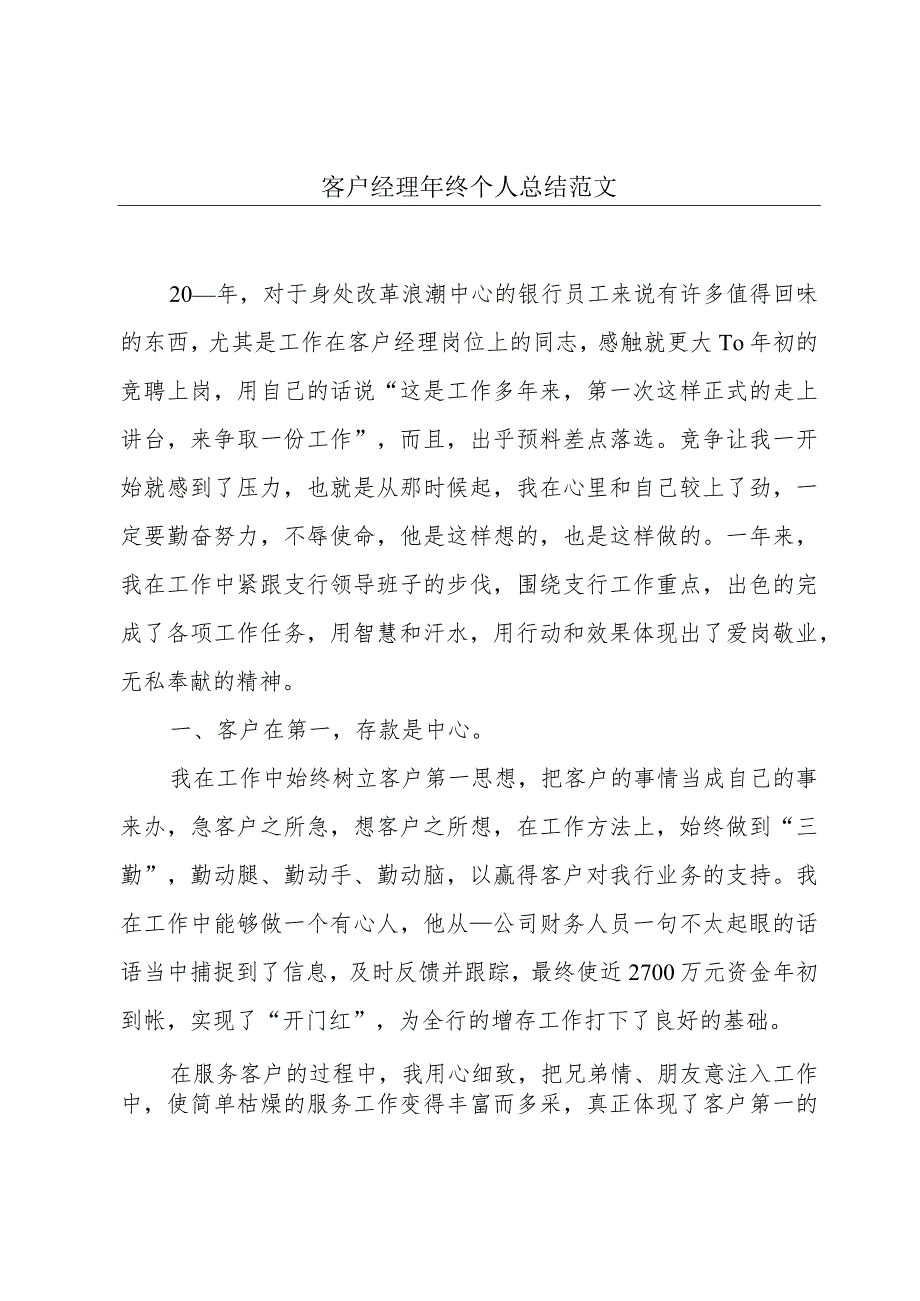 客户经理年终个人总结范文
20—年，对于身处改革浪潮中心的银行员工来说有许多值得回味
的东西，尤其是工作在客户经理岗位上的同志，感触就更大To年初的
竞聘上岗，用自己的话说“这是工作多年来，第一次这样正式的走上
讲台，来争取一份工作”，而且，出乎预料差点落选。竞争让我一开
始就感到了压力，也就是从那时候起，我在心里和自己较上了劲，一
定要勤奋努力，不辱使命，他是这样想的，也是这样做的。一年来，
我在工作中紧跟支行领导班子的步伐，围绕支行工作重点，出色的完
成了各项工作任务，用智慧和汗水，用行动和效果体现出了爱岗敬业，
无私奉献的精神。
一、客户在第一，存款是中心。
我在工作中始终树立客户第一思想，把客户的事情当成自己的事
来办，急客户之所急，想客户之所想，在工作方法上，始终做到“三
勤”，勤动腿、勤动手、勤动脑，以赢得客户对我行业务的支持。我
在工作中能够做一个有心人，他从—公司财务人员一句不太起眼的话
语当中捕捉到了信息，及时反馈并跟踪，最终使近2700万元资金年初
到帐，实现了“开门红”，为全行的增存工作打下了良好的基础。
在服务客户的过程中，我用心细致，把兄弟情、朋友意注入工作
中，使简单枯燥的服务工作变得丰富而多采，真正体现了客户第一的